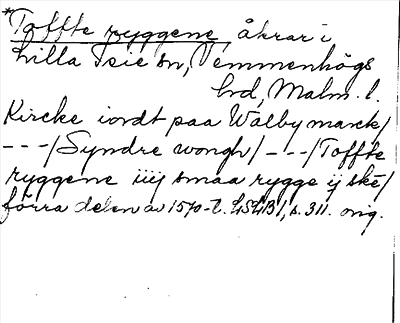 *Toffte ryggene, åkrar i
Lilla Isie sn, Vemmenhögs
hd, Malm. l.
Kircke iordt paa Walby marck/
---/Syndre wongh/---/Toffte
ryggene iiij smaa rygge ij ske/
förra delen av 1570-t. LSLB 1, s. 311. orig.